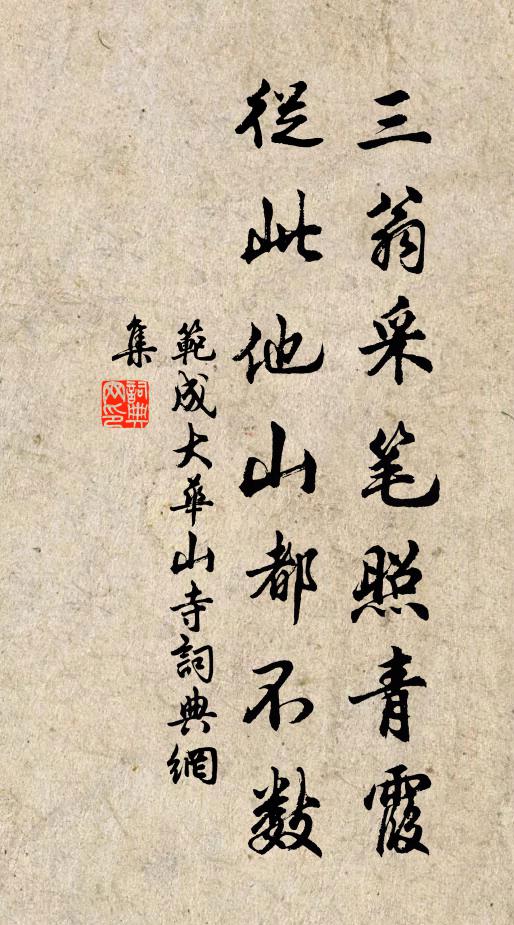 三翁采笔照青霞
從此他山都不数
範成大華山寺詞典網
集
詞典
网印